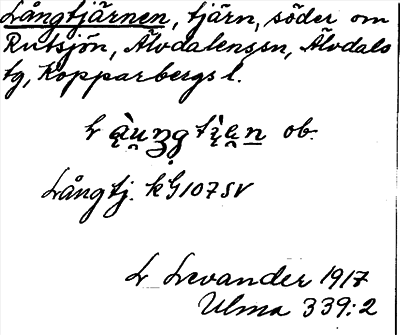 Långtjärnen, tjärn, söder om
Rutsjön, Älvdalenssn, Älvdals
tg, Kopparbergs l.
ob.
Långtj. kG107SV
L Levander 1917
Ulma 339:2